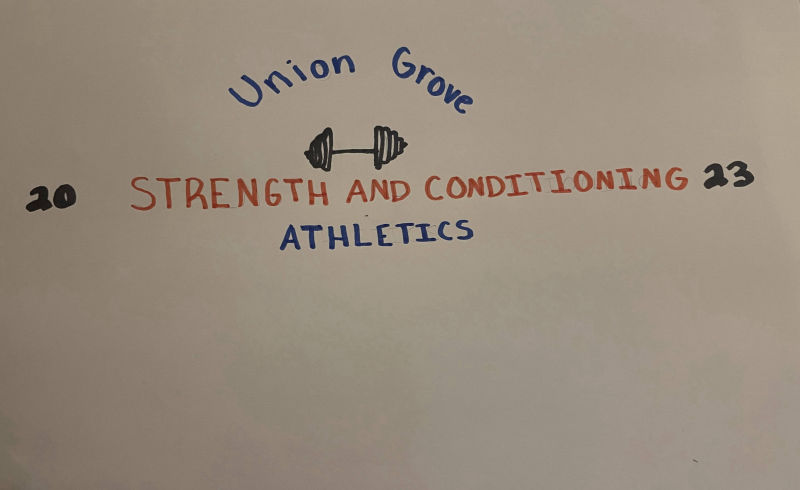 Union Grove
20 STRENGTH AND CONDITIONING 23
ATHLETICS